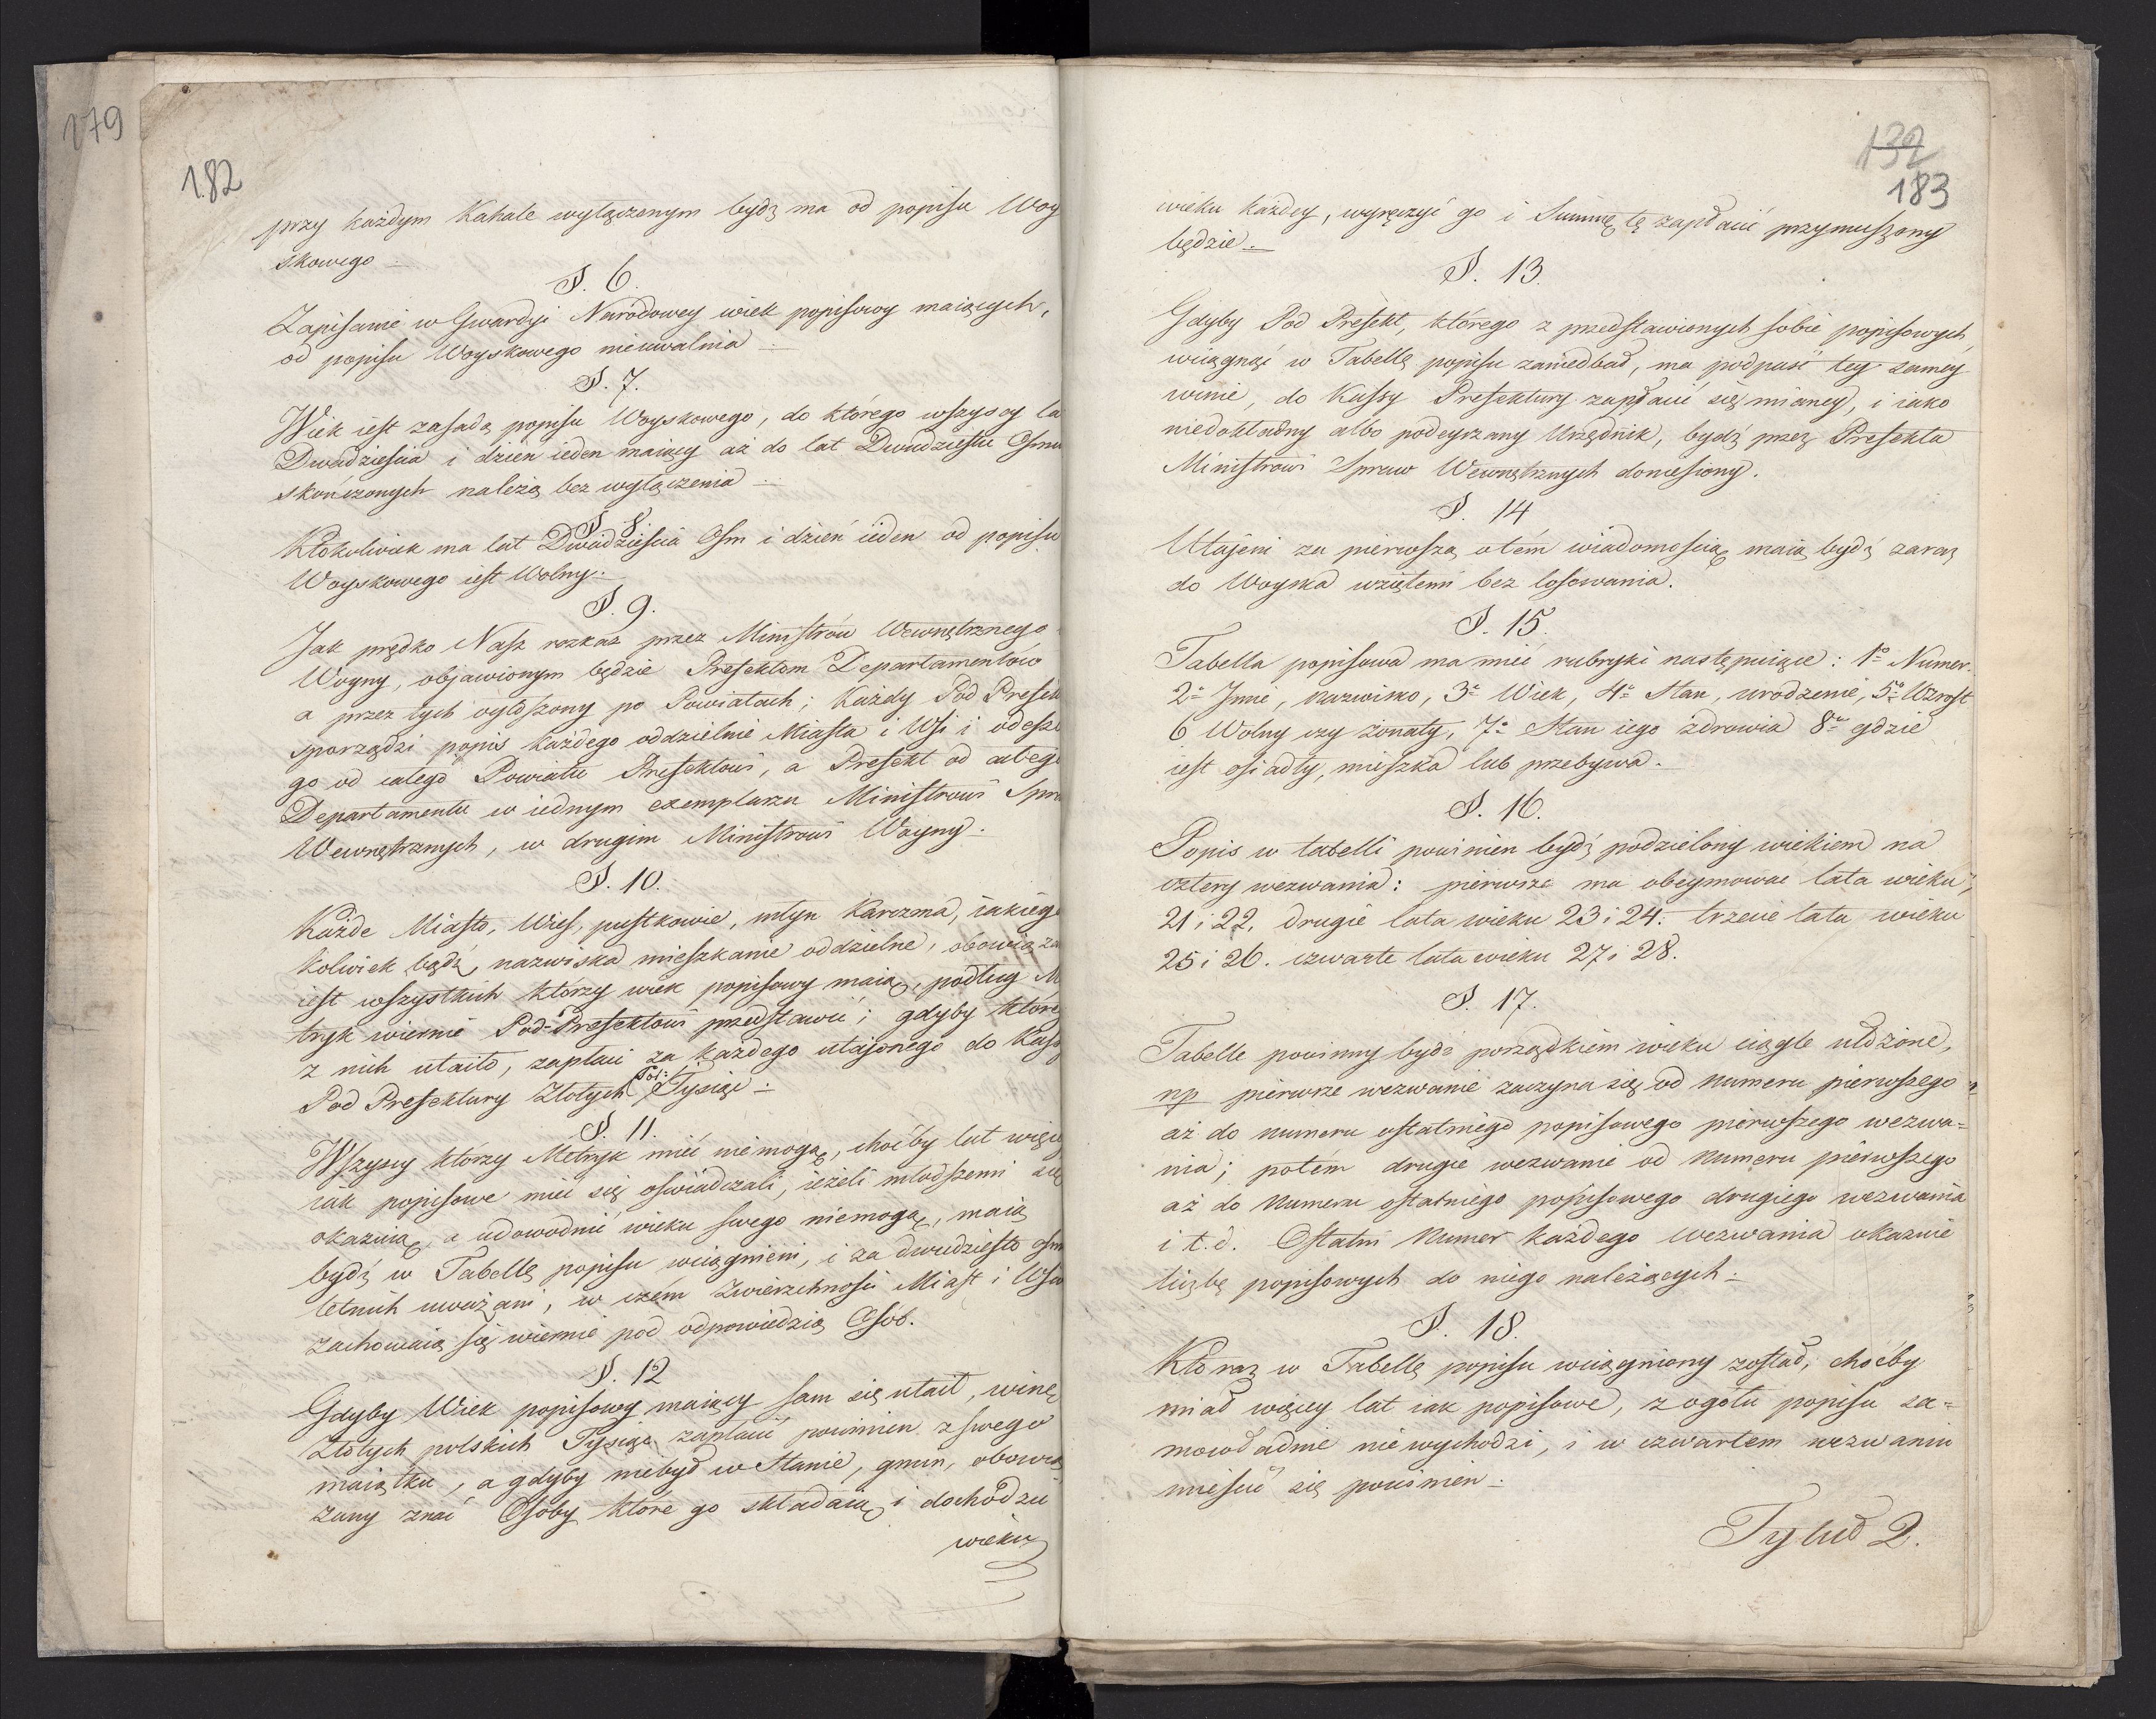 179
182
przy każdym Kahale wyłączonym bydź ma od popisu Woy
skowego
§. 6.
Zapisanie w Gwardyi Narodowey wiek popisowy maiących,
od popisu Woyskowego nieuwalnia
§. 7.
Wiek iest zasadą popisu Woyskowego, do którego wszyscy la
Dwudziestia i dzień ieden maiący aż do lat Dwudziestu Osmu
skończonych należą bez wyłączenia
§. 8.
Ktokolwiek ma lat Dwadzieścia Osm i dzień ieden od popisu
Woyskowego iest Wolny.
§. 9.
Jak prędko Nasz rozkaz przez Ministrów Wewnętrznego
Woyny, objawionym będzie Prefektom Departamentów
a przez tych ogłoszony po Powiatach; Każdy Pod Prefek
sporządzi popis każdego oddzielnie Miasta i Wsi i odeszl
go od całego Powiatu Prefektowi, a Prefekt od całego
Departamentu w iednym exemplarzu Ministrowi Spra
Wewnętrznych, w drugim Ministrowi Woyny.
§. 10.
Każde Miasto, Wieś, pustkowie, młyn Karczma, iakiego
kolwiek bądź, nazwiska mieszkanie oddzielne, obowiąza
iest wszystkich którzy wiek popisowy maią, podług M
tryk wiernie Pod-Prefektowi przedstawić; gdyby które
z nich utaiło, zapłaci za każdego utajonego do Kassy
Pod Prefektury Złotych Pol: Tysiąc
§. 11.
Wszyscy którzy Metryk mieć niemogą, choćby lat więcy
iak popisowe mieć się oświadczali, ieżeli młodszemi się
okazuią, a udowodnić wieku swego niemogą, maią
bydź w Tabellę popisu wciągnieni, i za dwudziesto osm
letnich uważani, w czém Zwierzchności Miast i Wsiow
zachowaią się wiernie pod odpowiedzią Osób.
§. 12
Gdyby Wiek popisowy maiący sam się utaił, winę
Złotych polskich Tysiąc zapłacić powinien z swego
maiątku, a gdyby niebył w Stanie, gmin, obowią
zany znać Osoby które go składaią i dochodzić
wieku
132
183
wieku każdey, wyręczyć go i Summę tę zapłacić przymuszony
będzie.
§. 13.
Gdyby Pod Prefekt, którego z przedstawionych sobie popisowych,
wciągnąć w Tabellę popisu zaniedbał, ma podpaść tey samey
winie, do Kassy Prefektury zapłacić się mianey, i iako
niedokładny albo podeyrzany Urzędnik, bydź przez Prefekta
Ministrowi Spraw Wewnętrznych doniesiony.
§. 14
Utajeni za pierwszą otém wiadomością maią bydź zaraz
do Woyska wziętemi bez losowania.
§. 15.
Tabella popisowa ma mieć rubryki następuiące: 1o Numer.
2o Jmie, nazwisko, 3o Wiek, 4o Stan, urodzenie, 5o Wzrost
6 Wolny czy żonaty, 7o Stan iego zdrowia 8o gdzie
iest osiadły, mieszka lub przebywa.
§. 16.
Popis w tabelli powinien bydź podzielony wiekiem na
cztery wezwania: pierwsze ma obeymować lata wieku,
21 i 22, drugie lata wieku 23 i 24. trzecie lata wieku
25 i 26. czwarte lata wieku 27 i 28.
§. 17.
Tabelle powinny bydź porządkiem wieku ciągle ułożone,
np pierwsze wezwanie zaczyna się od numeru pierwszego
aż do numeru ostatniego popisowego pierwszego wezwa=
nia; potém drugie wezwanie od numeru pierwszego
aż do Numeru ostatniego popisowego drugiego wezwania
i t.d. Ostatni Numer każdego wezwania okazuie
liczbę popisowych do niego należących
§. 18.
Kto raz w Tabellę popisu wciągniony został, choćby
miał więcy lat iak popisowe, z ogółu popisu sa=
mowładnie nie wychodzi, i w czwartem wezwaniu
mieścić się powinien
Tytuł 2.